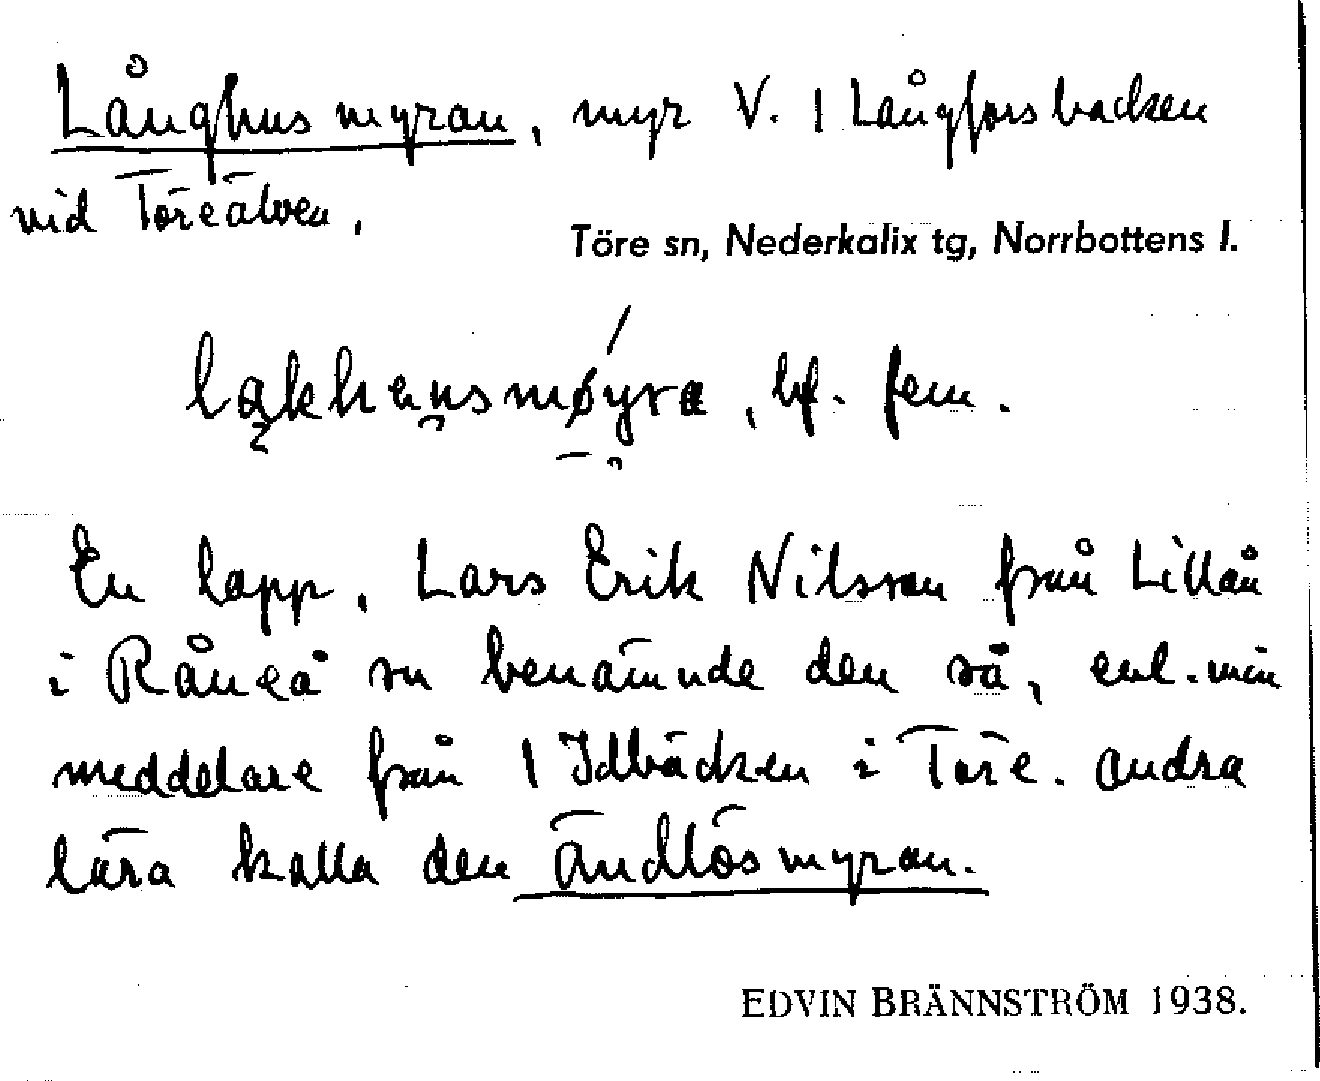 Långhusmyran, myr V. 1 Långforsbacken
vid Töreälven,
Töre sn, Nederkalix tg, Norrbottens l.
bf. fem.
En lapp, Lars Erik Nilsson från Lillån
i Råneå sn benämnde den så, enl. min
meddelare från 1 Idbäcken i Töre. Andra
lära kalla den Ändlösmyran.
EDVIN BRÄNNSTRÖM 1938.